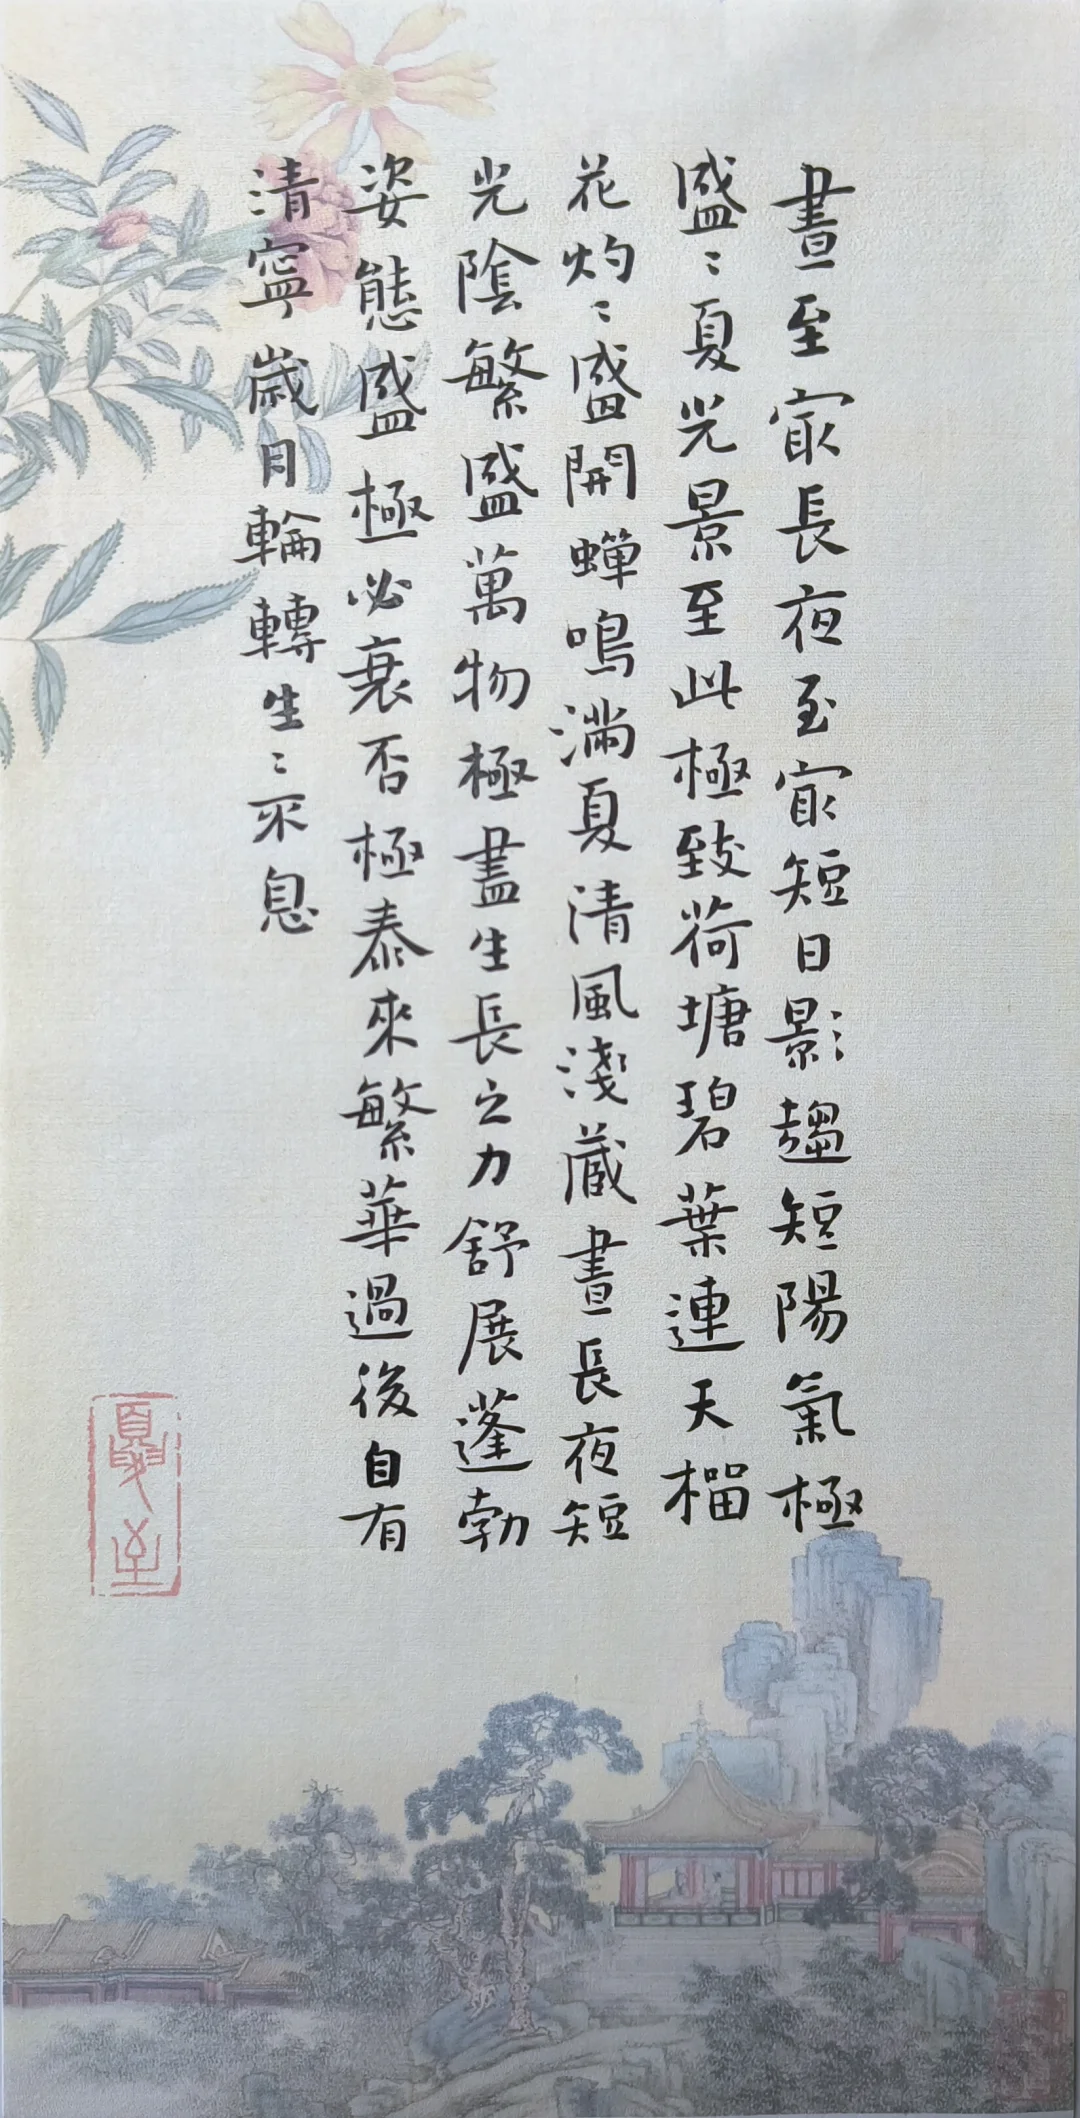 晝至㝡長夜至㝡短日影趨短陽氣極
盛〻夏光景至此極致荷塘碧葉連天榴
花灼〻盛開蟬鳴滿夏清風淺藏晝長夜短
光陰繁盛萬物極盡生長之力舒展蓬勃
姿態盛極必衰否極泰來繁華過後自有
清寧歲月輪轉生〻不息
夏至